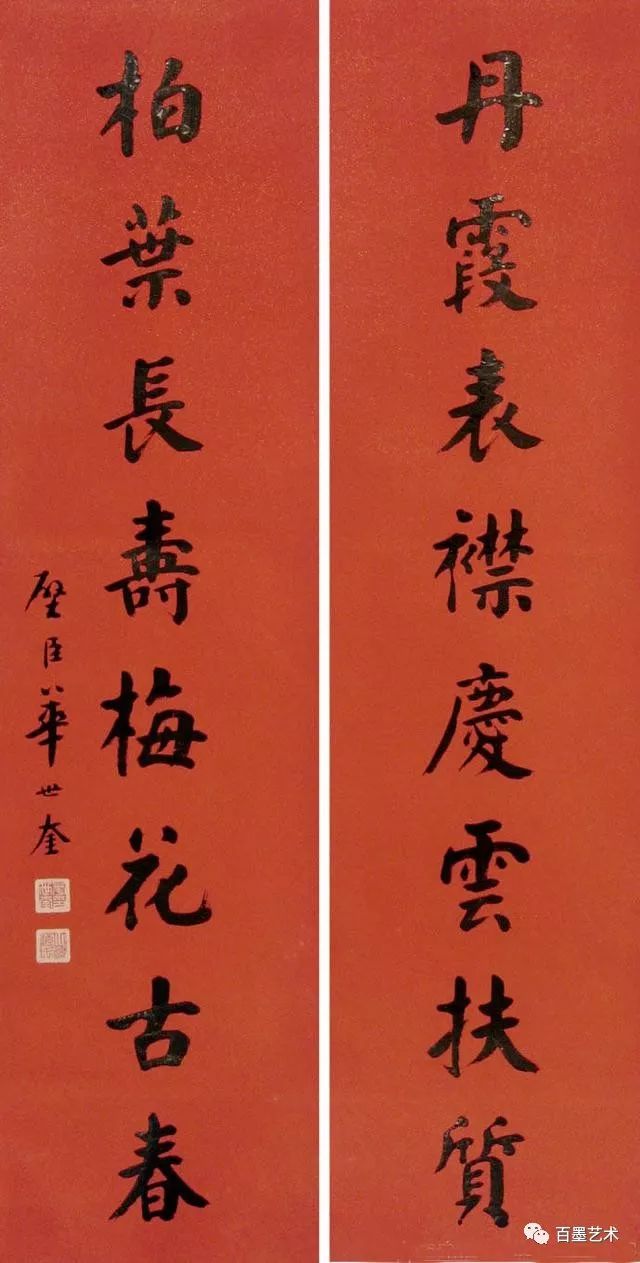 丹霞表襟慶雲扶質
柏葉長壽梅花古春
壁臣華世奎
百墨艺术